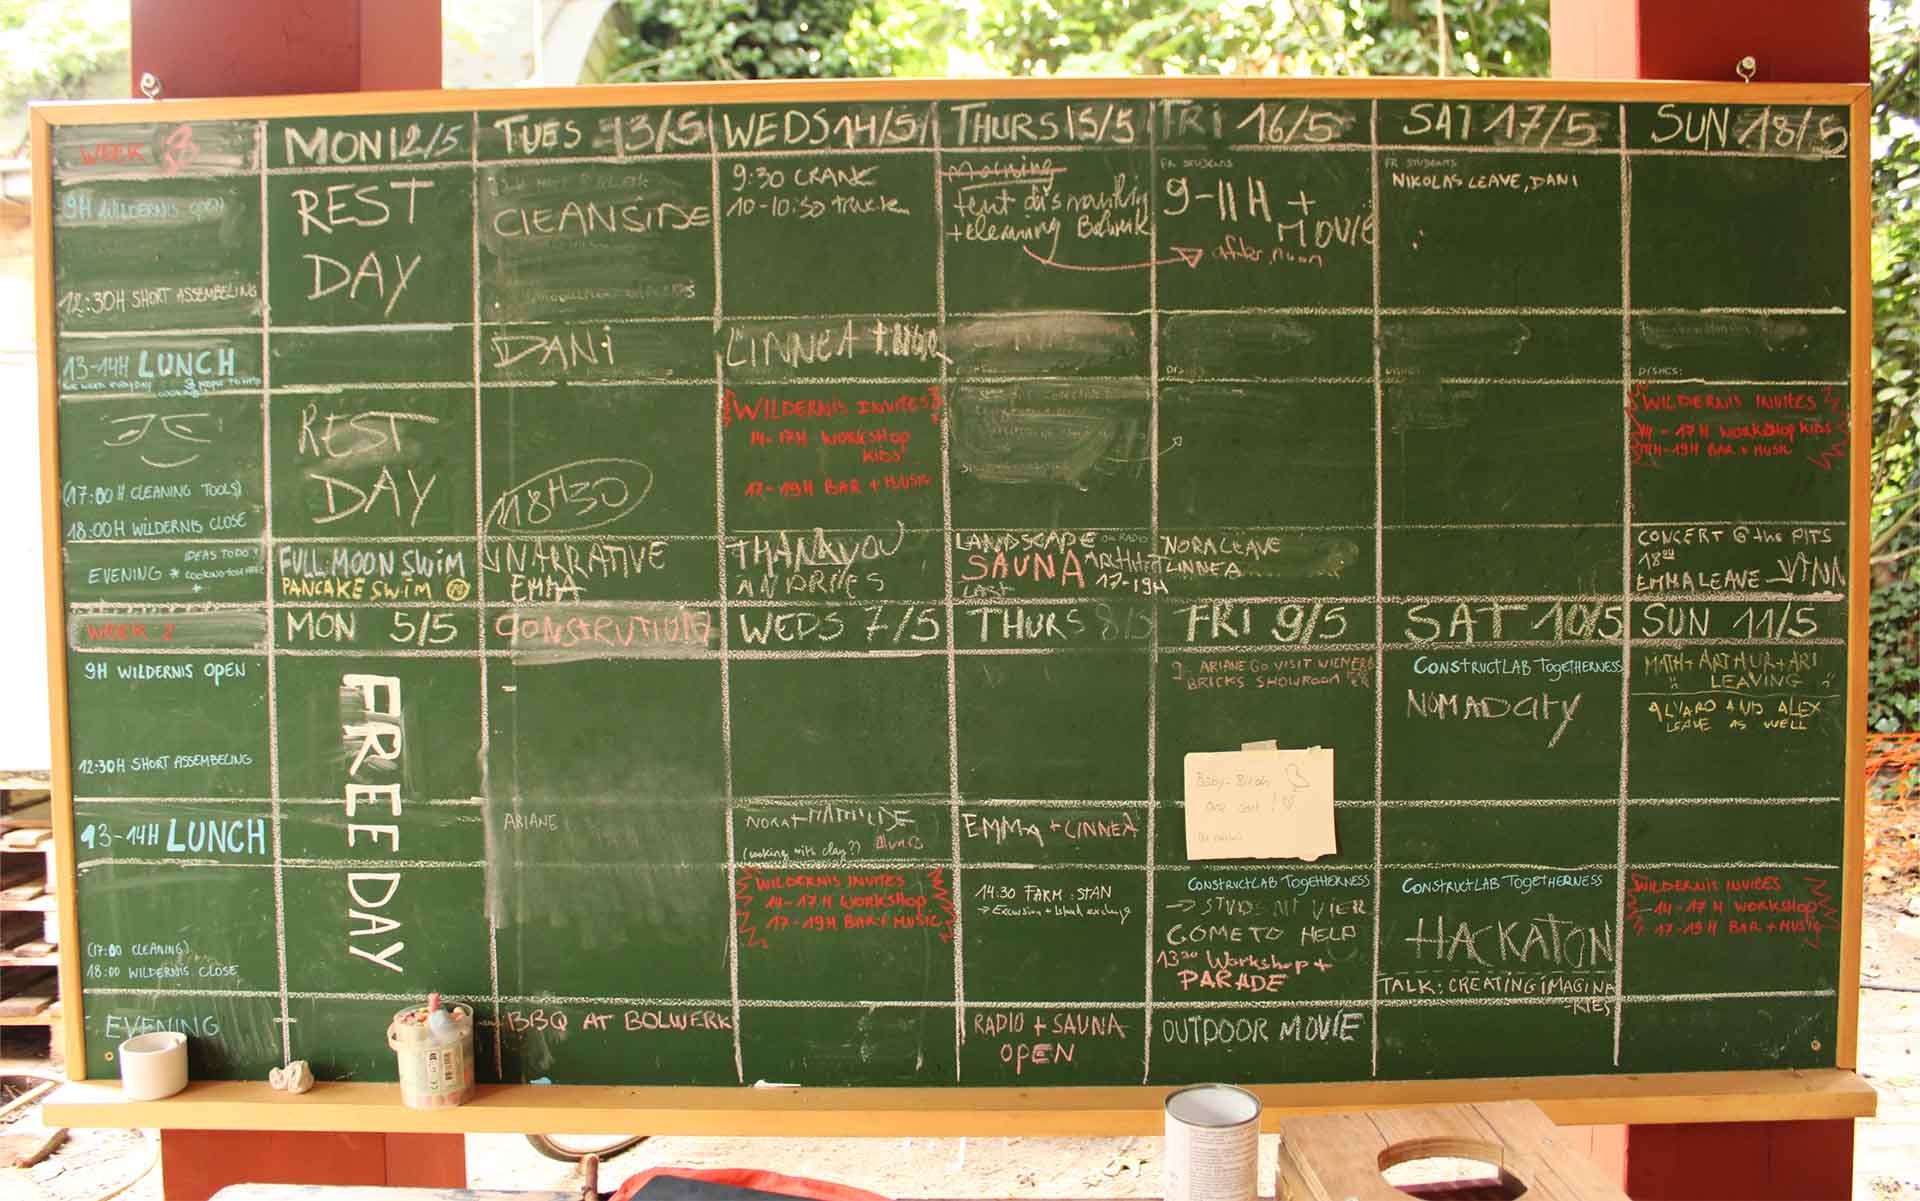 WEEK 3
MON 12/5
TUES 13/5
WEDS 14/5
THURS 15/5
FRI 16/5
SAT 17/5
SUN 18/5
9H WILDERNIS OPEN
12:30H SHORT ASSEMBELING
REST
DAY
CLEANSIDE
9:30 CRANE
10-10:30 truck
Morning
tent dismantling
+ cleaning Bolwerk
FR STUDENTS
9-11H +
MOVIE
after noon
FR STUDENTS
NIKOLAS LEAVE, DANI
13-14H LUNCH
DANI
LINNEA +
DISHES:
(17:00 H CLEANING TOOLS)
18:00H WILDERNIS CLOSE
REST
DAY
18H30
WILDERNIS INVITES
14-17H WORKSHOP
KIDS
17-19H BAR + MUSIC
WILDERNIS INVITES
14-17H WORKSHOP KIDS
17H-19H BAR + MUSIC
IDEAS TO DO:
EVENING *
+
FULL MOON SWIM
PANCAKE SWIM
NARRATIVE
EMMA
THANKYOU
ANDRIES
LANDSCAPE
SAUNA
LAST
ARCHITECT
17-19H
NORA LEAVE
LINNEA
CONCERT @ the PITS
18
EMMA LEAVE
WEEK 2
MON 5/5
CONSTRUTION
WEDS 7/5
THURS 8/5
FRI 9/5
SAT 10/5
SUN 11/5
9H WILDERNIS OPEN
12:30H SHORT ASSEMBELING
FREEDAY
9- ARIANE GO VISIT WIENERB
BRICKS SHOWROOM
CONSTRUCTLAB TOGETHERNESS
NOMADCITY
MATH + ARTHUR + ARI
LEAVING
ALVARO AND ALEX
LEAVE AS WELL
Baby-Birds
13-14H LUNCH
ARIANE
NORA + MATHILDE
(cooking with clay?)
EMMA + LINNEA
(17:00 CLEANING)
18:00 WILDERNIS CLOSE
WILDERNIS INVITES
14-17H WORKSHOP
17-19H BAR + MUSIC
14:30 FARM :STAN
CONSTRUCTLAB TOGETHERNESS
→ STUDENT VIER
COME TO HELP
13 30 Workshop +
PARADE
CONSTRUCTLAB TOGETHERNESS
HACKATON
TALK: CREATING IMAGINA
-RIES
WILDERNIS INVITES
14-17H WORKSHOP
17-19H BAR + MUSIC
EVENING
BBQ AT BOLWERK
RADIO + SAUNA
OPEN
OUTDOOR MOVIE